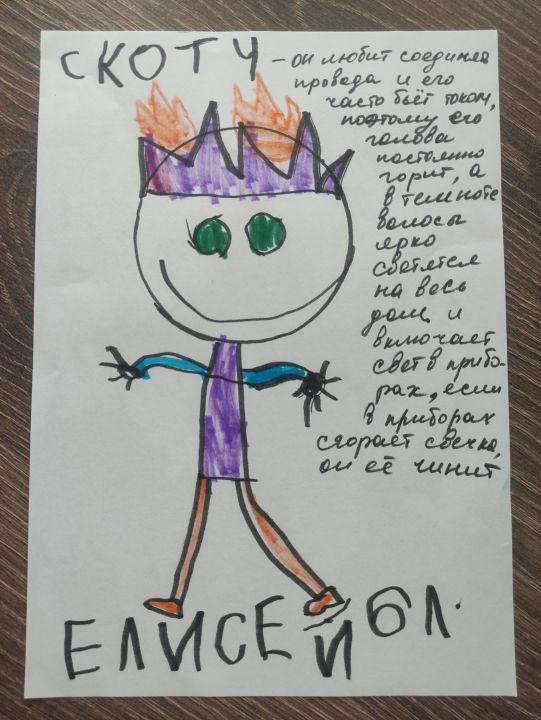 СКОТЧ
- он любит соединять
провода и его
часто бьёт током,
поэтому его
голова
постоянно
горит, а
в темноте
волосы
ярко
светятся
на весь
дом и
включает
свет в прибо-
рах, если
в приборах
сгорает свечка,
он её чинит
ЕЛИСЕЙ 6 Л.